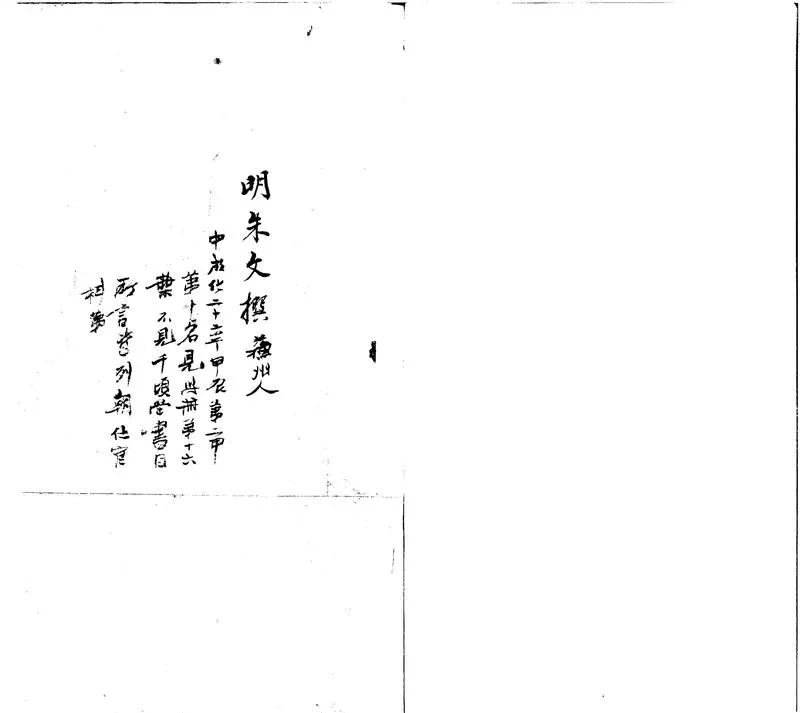 明朱文撰 蘓州人
中成化二十年甲辰第二甲
第十名見此冊第十六
葉不見千頃堂書目
所言皆列朝仕宦
科第